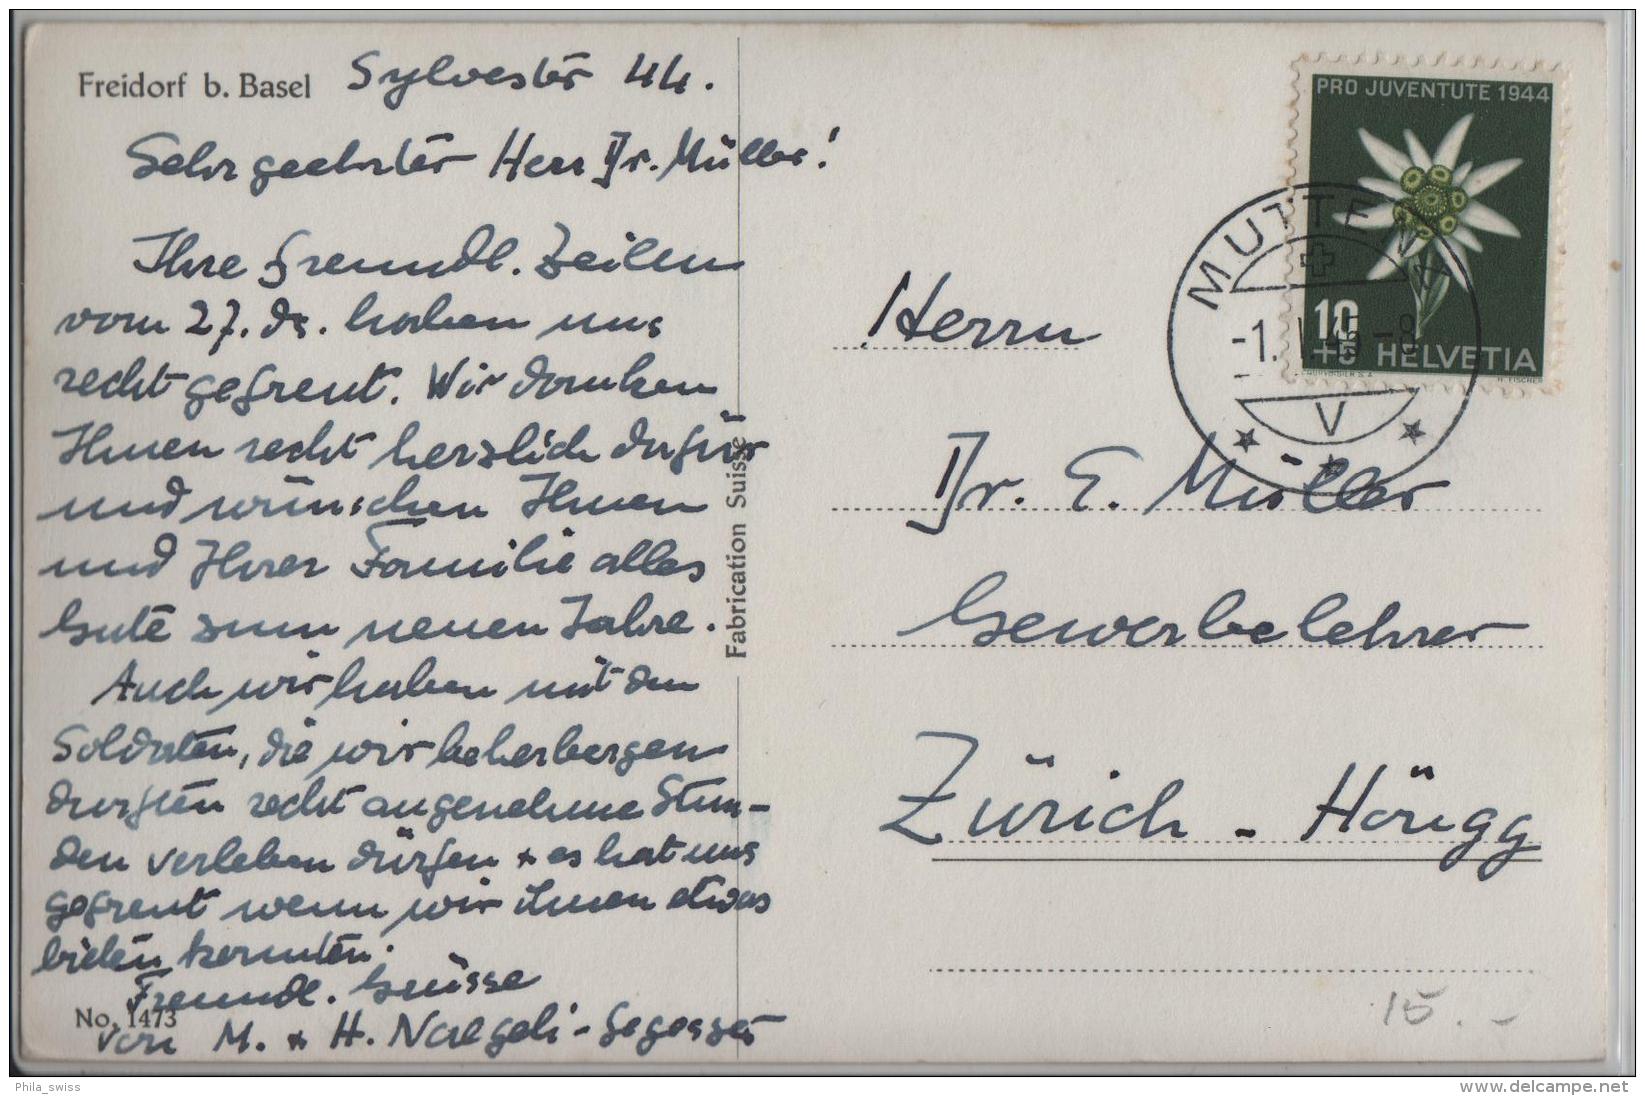 Freidorf b. Basel Sylvester 44.
Sehr geehrter Herr Dr. Müller!
Ihre freundl. Zeilen
vom 27. ds. haben uns
recht gefreut. Wir danken
Ihnen recht herzlich dafür
und wünschen Ihnen
und Ihrer Familie alles
Gute zum neuen Jahre.
Auch wir haben mit den
Soldaten, die wir beherbergen
durften recht angenehme Stun-
den verleben dürfen + es hat uns
gefreut wenn wir ihnen etwas
bieten konnten.
Freundl. Grüsse
No. 1473
von M. + H. Naegeli-Gegesser
Fabrication Suisse
PRO JUVENTUTE 1944
10
+5 HELVETIA
H. FISCHER
MUTTENZ
-1. I. 45 -8
V
Herrn
Dr. E. Müller
Gewerbelehrer
Zürich - Höngg
15.-
Phila_swiss
www.delcampe.net